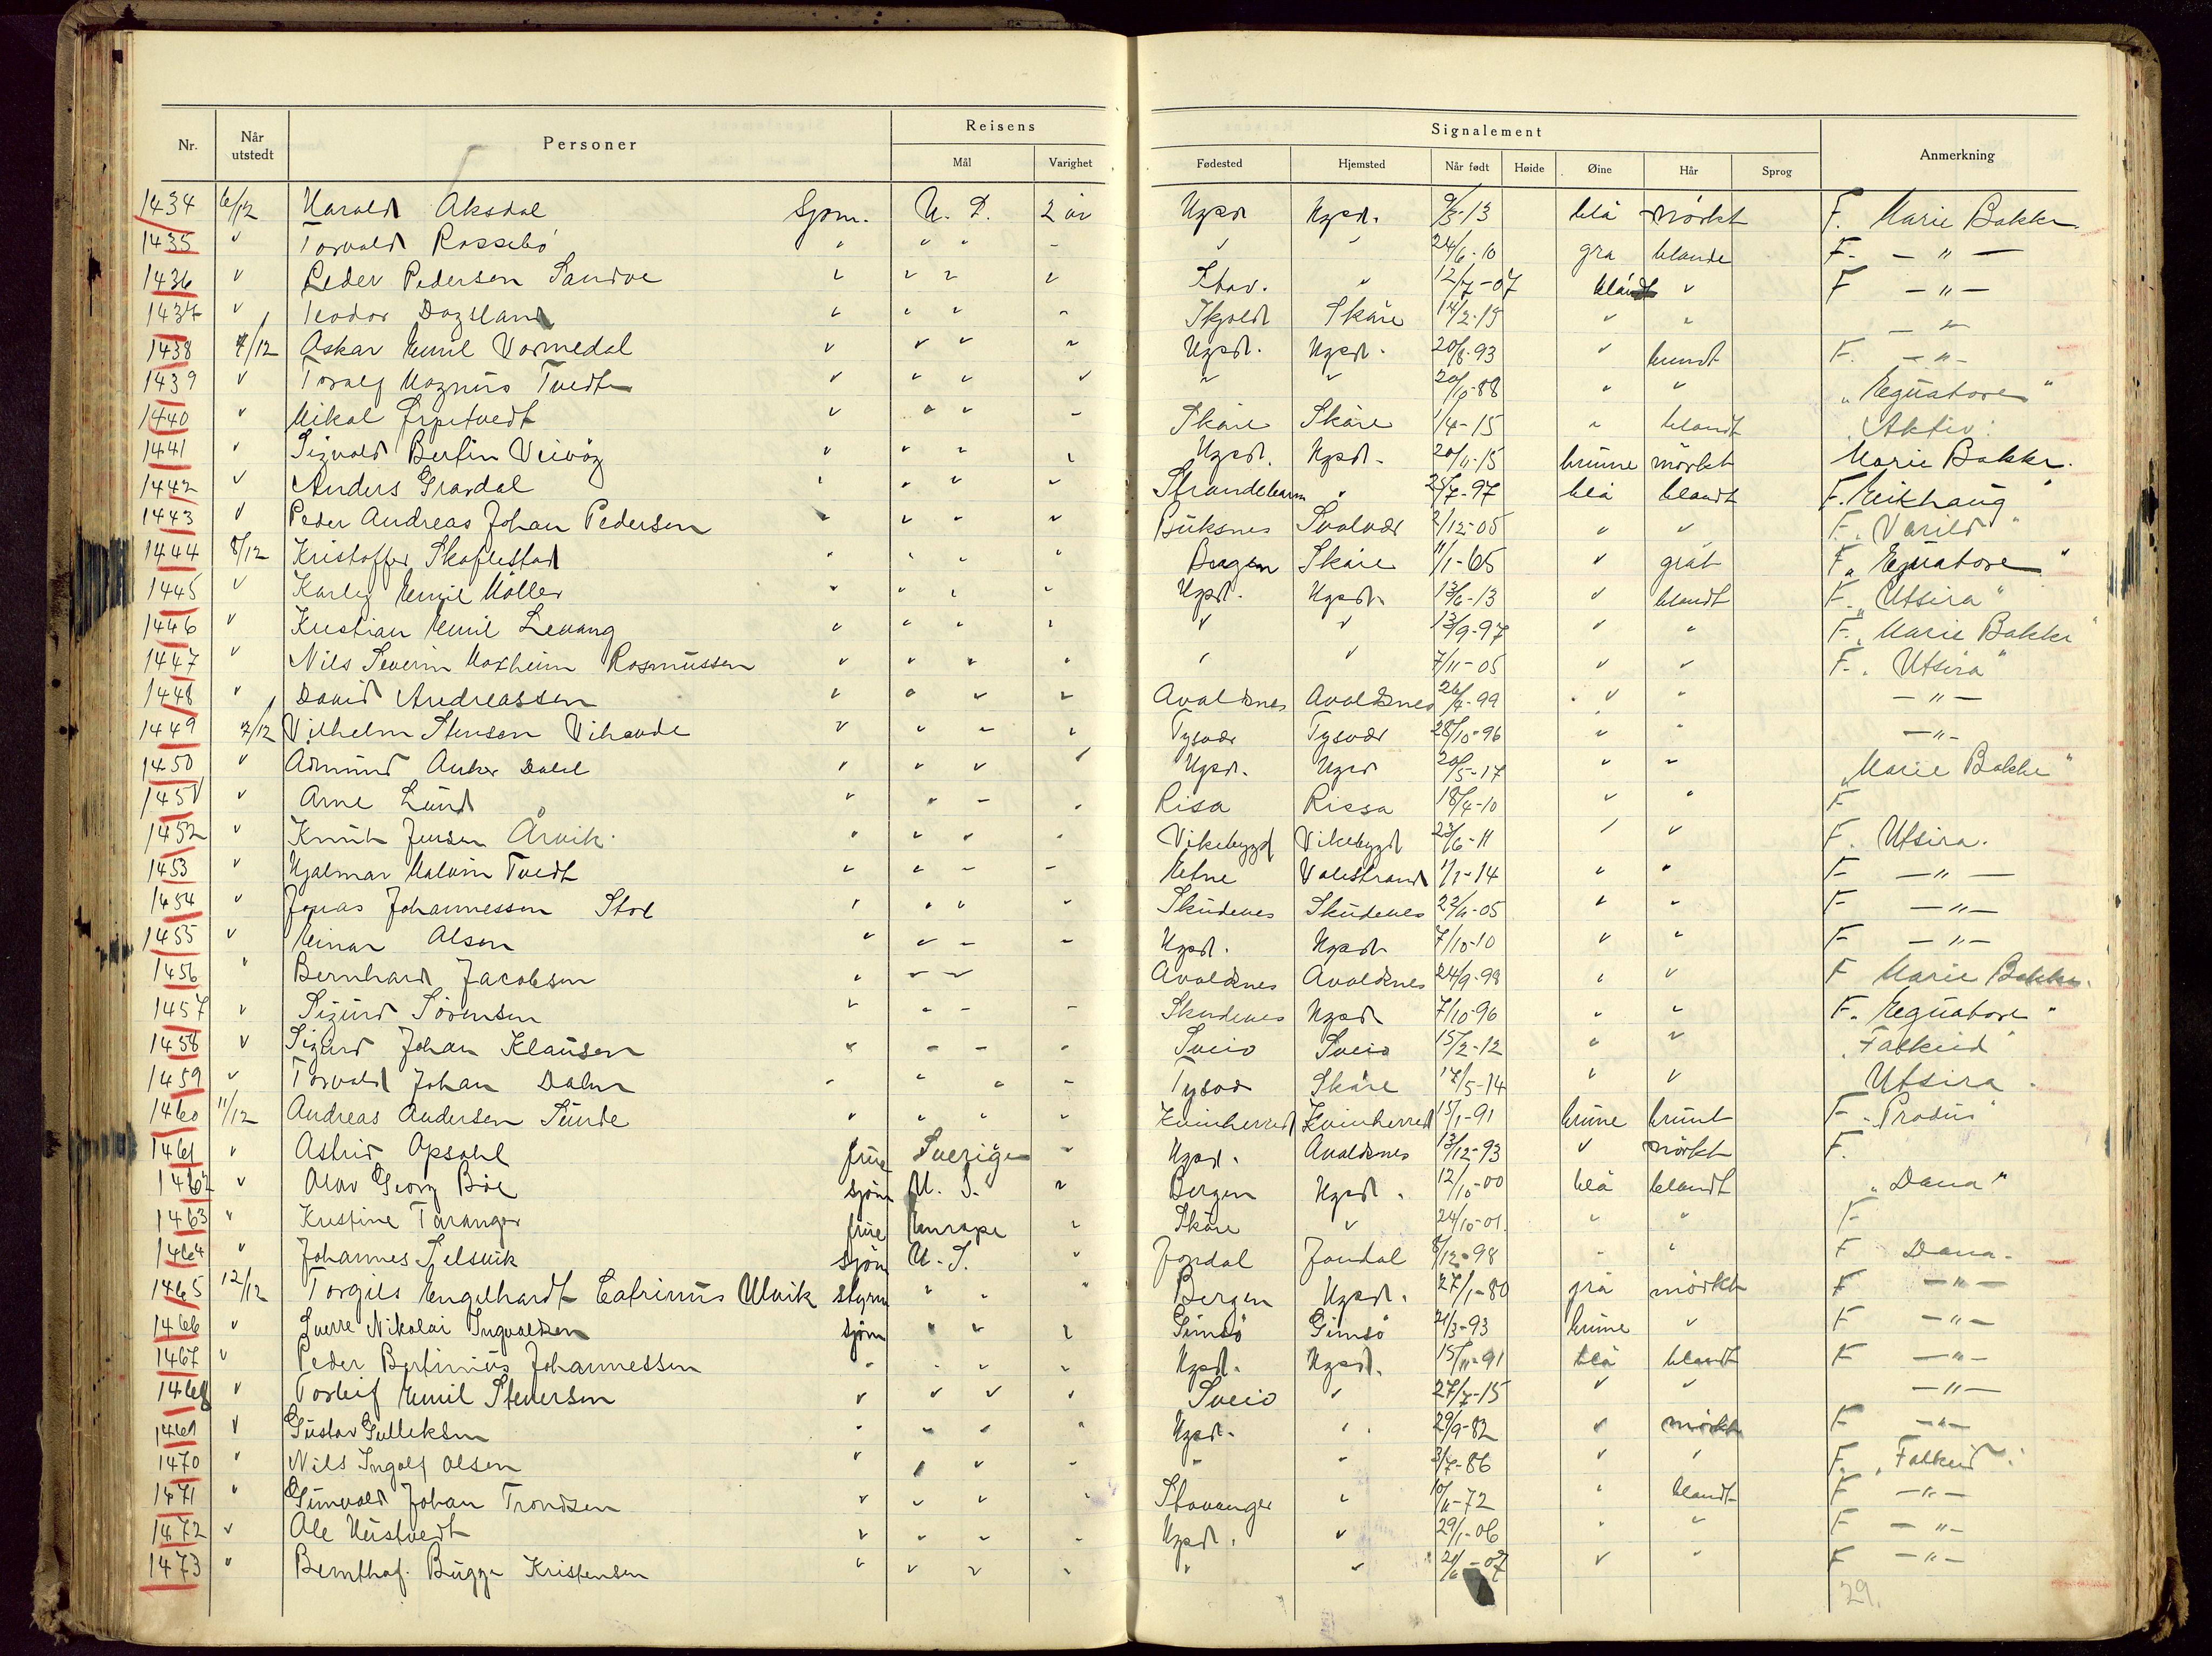 Nr. Når utstedt Personer Reisens Mål Varighet Signalement Fødested Hjemsted Når født Høide Øine Hår Sprog Anmerkning
1434 6/12 Harald Aksdal Sjøm. U. S. 2 år Hgsd Hgsd. 9/3-13 blå mørkt F. Marie Bakke
1435 " Torvald Rossebö " " " - " " 24/6-10 grå blonde F. - " -
1436 " Peder Pedersen Sandve " " " " Stav. " 12/7-07 blå " F - " -
1437 " Teodor Dagsland " " " " Skjold Skåre 14/2-15 " " - " -
1438 7/12 Oskar Emil Vormedal " " " " Hgsd. Hgsd. 20/8-93 " brunt F. - " -
1439 " Toralf Magnus Tvedt " " " " " " 20/10-88 " " "Equatore"
1440 " Mikal " " " - Skåre Skåre 1/4-15 " blondt "Aktiv"
1441 " Sigvald Bertin " " " " Hgsd. Hgsd. 20/11-15 brune mørkt Marie Bakke.
1442 " Anders Gravdal " " " " Strandebarm " 25/7-97 blå blondt F. Eikhaug"
1443 " Peder Andreas Johan Pedersen " " " " Buksnes Svolvær 2/12-05 " " F. Varild"
1444 8/12 Kristoffer Skoflestad " " " " Skåre 11/1-65 " gråt F "Equatore"
1445 " Karley Emil Möller " " " " Hgsd. Hgsd. 13/6-13 " blondt F. "Utsira"
1446 " Kristian Emil Levang " " " " " " 13/9-97 " " F. "Marie Bakke"
1447 " Nils Severin Moxheim Rasmussen " " " " " " 7/11-05 " " F. "Utsira"
1448 " David Andreassen " " " " Avaldsnes Avaldsnes 26/4-99 " " - " -
1449 7/12 Vilhelm Stensen Vihovde " " " " Tysvær Tysvær 28/10-96 " " - " -
1450 " Admund Anker Dahl " " " " Hgsd. Hgsd 20/5-17 " " "Marie Bakke"
1451 " Arne Lund " " - " Risa Rissa 18/4-10 " " F
1452 " Knut Jensen Årvik. " " " " Vikebygd Vikebygd 23/6-11 " " F. Utsira.
1453 " Hjalmar Malvin Tvedt " " - - Etne Valestrand 1/1-14 " " F - " -
1454 " Jonas Johannessen Stol " " " " Skudenes Skudenes 22/11-05 " " F - " -
1455 " Einar Olsen " " - - Hgsd. Hgsd. 7/10-10 " " F - " -
1456 " Bernhard Jacobsen " " " Avaldsnes Avaldsnes 24/9-98 " " F Marie Bakke.
1457 " Sigurd Sörensen " " - - Skudenes Hgsd. 7/10-96 " " F. Equatore"
1458 " Sigurd Johan Klausen " - - " Sveio Sveio 15/2-12 " " "Falkeid"
1459 " Torvald Johan - " " - Tysvær Skåre 17/5-14 " " Utsira.
1460 11/12 Andreas Andersen Sunde " " " " Kvinherred Kvinherred 15/1-91 brune brunt F.
1461 " Astrid Opsahl frue Sverige " Hgsd. Avaldsnes 13/12-93 " mørkt F.
1462 " Olav Georg Böe sjøm U. S. " Bergen Hgsd. 12/10-00 blå blondt "Dana"
1463 " Kristine Taranger frue Europa " Skåre " 24/10-01. " " F
1464 " Johannes Selsvik sjøm U. S. " Jondal Jondal 8/12-98 - " F Dana.
1465 12/12 Torgils Engelhardt Catrinus Ulvik styrm " " " Bergen Hgsd. 27/1-80 grå mørkt F - " -
1466 " Sverre Nikolai Ingvaldsen sjøm " " " Gimsö Gimsö 21/3-93 brune " F - " -
1467 " Peder Bertinius Johannessen " " " " Hgsd. Hgsd. 15/11-91 blå blondt F - " -
1468 " Torleif Emil Stenersen " " " " Sveio " 27/7-15 " " - " -
1469 " Gustav Gulleksen " - " " Hgsd. " 29/9-82 " mørkt F - " -
1470 " Nils Ingolf Olsen " " " - " - 3/7-86 " " F. "Falkeid"
1471 " Gunvald Johan Trondsen " " " " Stavanger " 10/11-72 " blondt F - " -
1472 " Ole Hustvedt " " - - Hgsd. " 29/1-06 " " F - " -
1473 " Bernthof. Bugge Kristensen " " " " " " 21/6-07 " " F - " -
29.